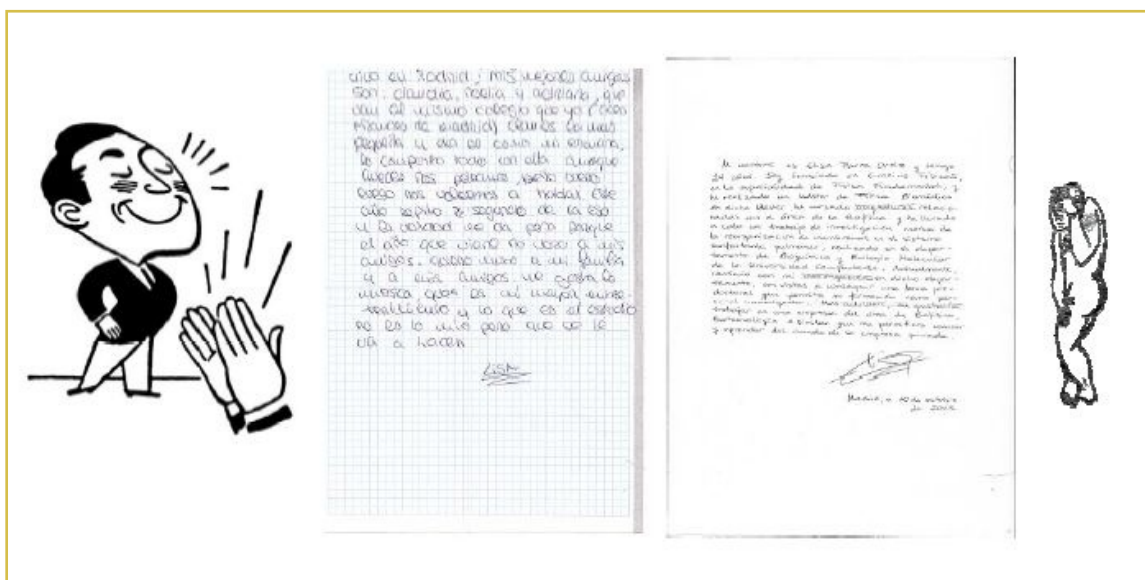 vivo en Madrid, mis mejores amigas
son: claudia, noelia y adriana, que
van al mismo colegio que yo
de madrid)
pequeña y ella es como mi
lo comparto todo con ella aunque
veces nos peleamos, pero
luego nos volvemos a hablar. Este
año repito 2º segundo de la eso
y la verdad me da pena porque
el año que viene no veré a mis
amigos. quiero mucho a mi familia
y a mis amigos me gusta la
musica que es mi mayor entre-
tenimiento y lo que es el estudio
no es lo mio pero que se le
va a hacer.
LISA
Mi nombre es Elisa y tengo
24 años. Soy licenciada en Ciencias Físicas,
en la especialidad de Física Fundamental, y
he realizado un Máster de Física Biomédica
en dicho Máster he cursado asignaturas relacio-
nadas con el área de la Biofísica y he llevado
a cabo un trabajo de investigación acerca de
la reorganización de membranas en el sistema
surfactante pulmonar, realizado en el depar-
tamento de Bioquímica y Biología Molecular
de la Universidad Complutense. Actualmente,
continúo con mi en dicho depar-
tamento, con vistas a conseguir una beca pre-
doctoral que permita mi formación como per-
sonal investigador. Más adelante, me gustaría
trabajar en una empresa del área de Biofísica,
Biotecnología o similar que me permitiera conocer
y aprender del mundo de la empresa privada.
Madrid, a 10 de octubre
de